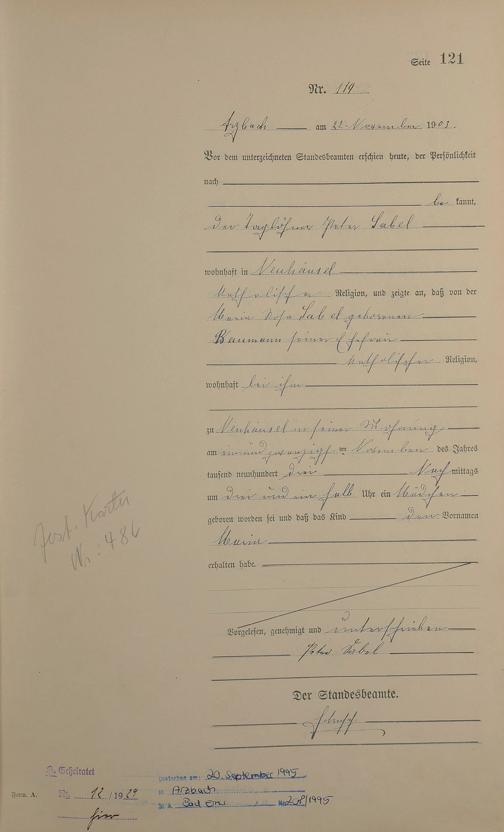 Seite 121
Nr. 119
Arzbach am 22. November 1903.
Vor dem unterzeichneten Standesbeamten erschien heute, der Persönlichkeit
nach
be kannt,
der Taglöhner Peter Sabel
wohnhaft in Neuhäusel
katholischer Religion, und zeigte an, daß von der
Maria Rosa Sabel geborenen
Baumann seiner Ehefrau
katholischer Religion,
wohnhaft bei ihm
zu Neuhäusel in seiner Wohnung
am einundzwanzigsten November des Jahres
tausend neunhundert drei Nach mittags
um drei und ein halb Uhr ein Mädchen
geboren worden sei und daß das Kind den Vornamen
Maria
erhalten habe.
Vorgelesen, genehmigt und unterschrieben
Peter Sabel
Der Standesbeamte.
Nr: 486
Geheiratet
Nr. 12 / 1929
Form. A.
Gestorben am: 20. September 1995
in Arzbach
Bad Ems
/1995